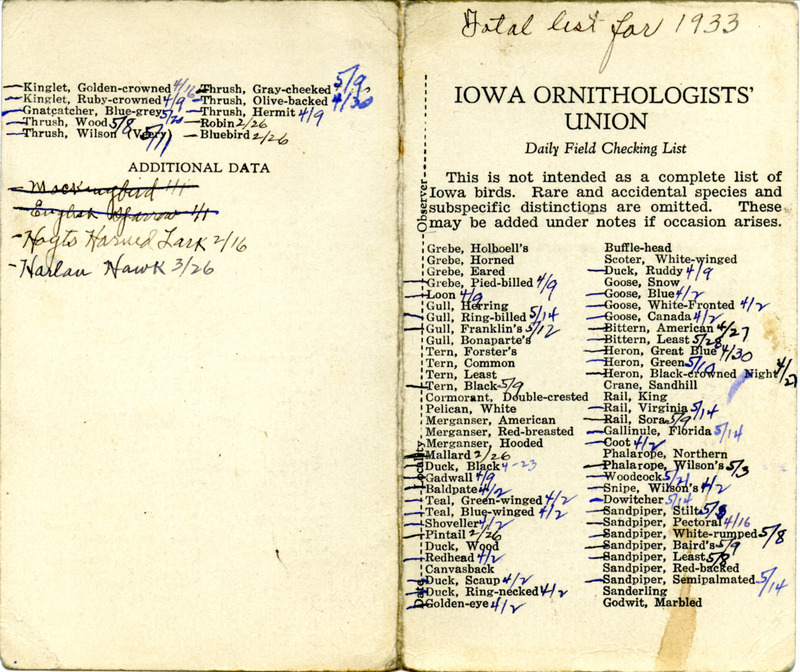 Kinglet, Golden-crowned 4/16
Kinglet, Ruby-crowned 4/9
Gnatcatcher, Blue-grey 5/21
Thrush, Wood 5/8
Thrush, Wilson (Veery) 5/11
Thrush, Gray-cheeked 5/9
Thrush, Olive-backed 4/30
Thrush, Hermit 4/9
Robin 2/26
Bluebird 2/26
ADDITIONAL DATA
Mockingbird 1/1
English Sparrow 1/1
-Hoyts Horned Lark 2/16
-Harlan Hawk 3/26
Total list for 1933
IOWA ORNITHOLOGISTS'
UNION
Daily Field Checking List
This is not intended as a complete list of
Iowa birds. Rare and accidental species and
subspecific distinctions are omitted. These
may be added under notes if occasion arises.
Observer
Locality
Date
Grebe, Holboell's
Grebe, Horned
Grebe, Eared
Grebe, Pied-billed 4/9
Loon 4/9
Gull, Herring
Gull, Ring-billed 5/14
Gull, Franklin's 5/12
Gull, Bonaparte's
Tern, Forster's
Tern, Common
Tern, Least
Tern, Black 5/9
Cormorant, Double-crested
Pelican, White
Merganser, American
Merganser, Red-breasted
Merganser, Hooded
Mallard 2/26
Duck, Black 4-23
Gadwall 4/9
Baldpate 4/2
Teal, Green-winged 4/2
Teal, Blue-winged 4/2
Shoveller 4/2
Pintail 2/26
Duck, Wood
Redhead 4/2
Canvasback
Duck, Scaup 4/2
Duck, Ring-necked 4/2
Golden-eye 4/2
Buffle-head
Scoter, White-winged
Duck, Ruddy 4/9
Goose, Snow
Goose, Blue 4/2
Goose, White-Fronted 4/2
Goose, Canada 4/2
Bittern, American 4/27
Bittern, Least 5/28
Heron, Great Blue 4/30
Heron, Green 5/10
Heron, Black-crowned Night 4/27
Crane, Sandhill
Rail, King
Rail, Virginia 5/14
Rail, Sora 5/9
Gallinule, Florida 5/14
Coot 4/2
Phalarope, Northern
Phalarope, Wilson's 5/3
Woodcock 5/21
Snipe, Wilson's 4/2
Dowitcher 5/14
Sandpiper, Stilt 5/8
Sandpiper, Pectoral 4/16
Sandpiper, White-rumped 5/8
Sandpiper, Baird's 5/9
Sandpiper, Least 5/8
Sandpiper, Red-backed
Sandpiper, Semipalmated 5/14
Sanderling
Godwit, Marbled